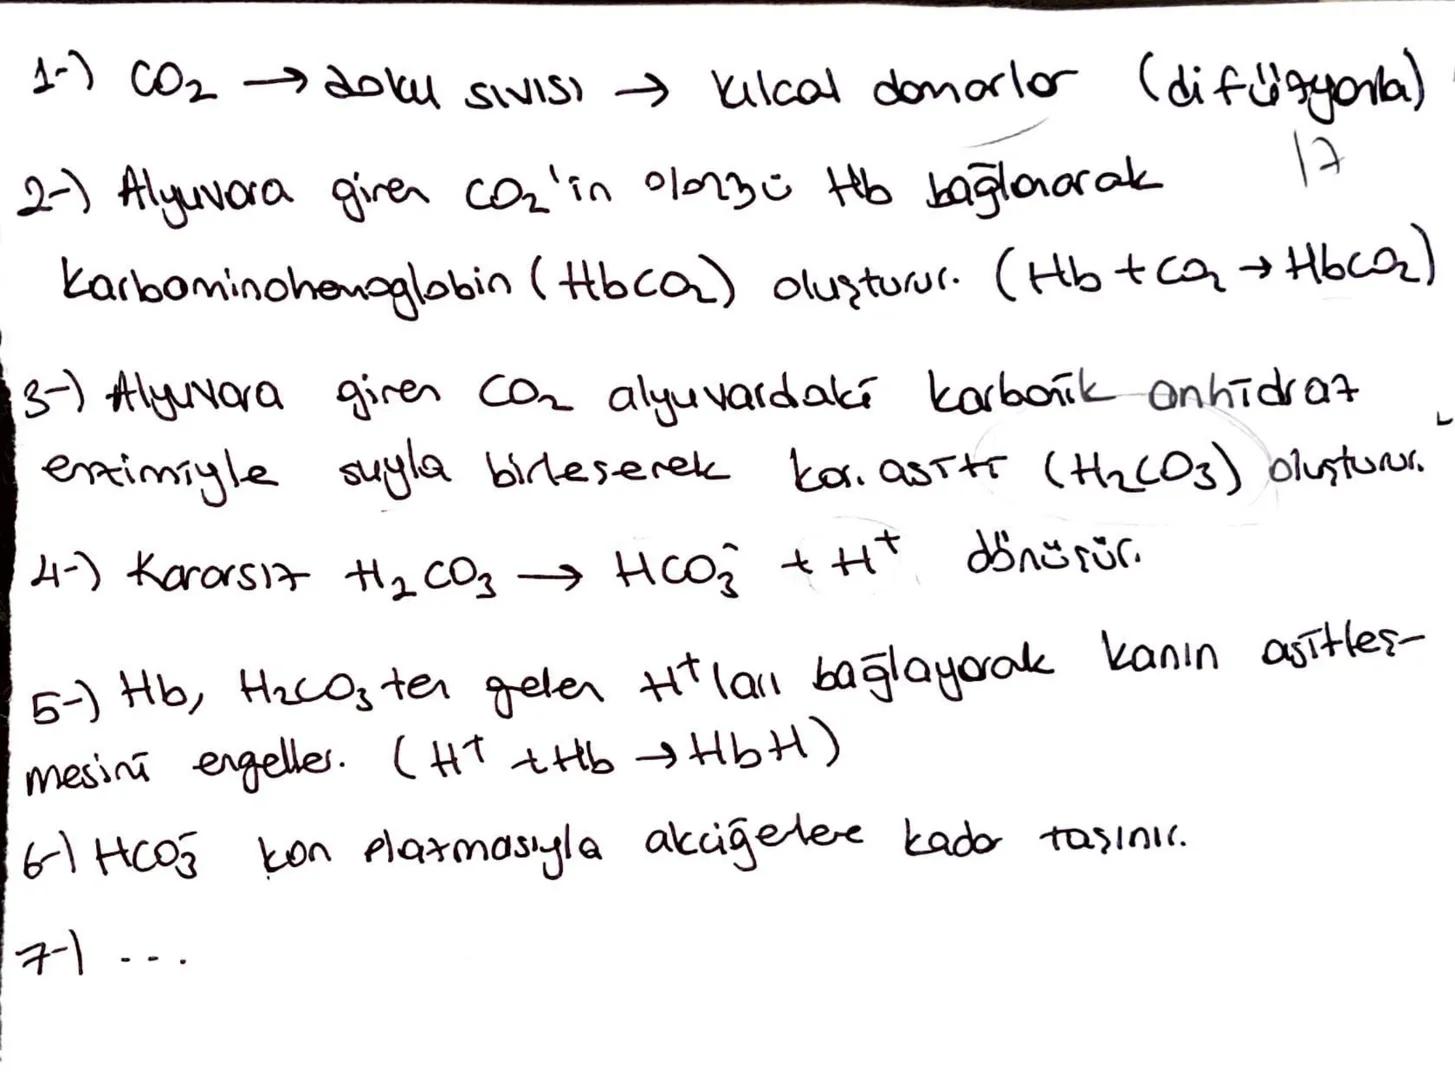 1-) CO₂ → doku sıvısı → kılcal damarlar (difüzyonla)
17
2-) Alyuvara giren CO₂'in Hb bağlanarak
karbominohemoglobin (HbCO₂) oluşturur. (Hb + CO₂ → HbCO₂)
3-) Alyuvara giren CO₂ alyuvardaki karbonik anhidraz
enzimiyle suyla birleşerek kar. asiti (H₂CO₃) oluşturur.
4-) Kararsız H₂CO₃ → HCO₃⁻ + H⁺ dönüşür.
5-) Hb, H₂CO₃ ten gelen H⁺ları bağlayarak kanın asitleş-
mesini engeller. (H⁺ + Hb → HbH)
6-) HCO₃⁻ kan plazmasıyla akciğerlere kadar taşınır.
7-) ...